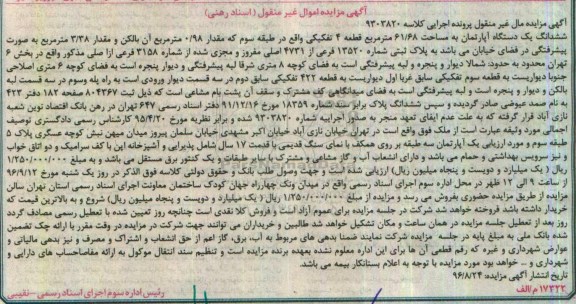 آگهی مزایده اموال غیر منقول (اسناد رهنی)
آگهی مزایده مال غیر منقول پرونده اجرایی کلاسه ۹۳۰۳۸۲۰
ششدانگ یک دستگاه آپارتمان به مساحت ۶۱/۶۸ مترمربع قطعه ۴ تفکیکی واقع در طبقه سوم که مقدار ۰/۹۸ مترمربع آن بالکن و مقدار ۳/۳۸ مترمربع به صورت
پیشرفتگی در فضای خیابان می باشد به پلاک ثبتی شماره ۱۳۵۲۰ فرعی از ۴۷۳۱ اصلی مفروز و مجزی شده از شماره ۳۱۵۸ فرعی ازا صلی مذکور واقع در بخش ۶
تهران محدود به حدود: شمالا دیوار و پنجره و لبه پیشرفتگی است به فضای کوچه ۸ متری شرقا لبه پیشرفتگی و دیوار پنجره است به فضای کوچه ۶ متری اصلاحی
جنوبا دیواریست به قطعه سوم تفکیکی سابق غربا اول دیواریست به قطعه ۴۲۲ تفکیکی سابق دوم در سه قسمت دیوار ورودی است به راه پله وسوم در سه قسمت لبه
بالکن و دیوار و پنجره است و لبه پیشرفتگی است به فضای میدانگاهی کف مشترک و سقف آن پشت بام مشاعی است که ذیل ثبت ۸۰۴۶۴۷ صفحه ۱۸۲ دفتر ۴۲۳
به نام صمد عیوضی صادر گردیده و سپس ششدانگ پلاک برابر سند شماره ۱۸۳۵۹ مورخ ۹۱/۱۲/۱۶ دفتر اسناد رسمی ۶۴۷ تهران در رهن بانک اقتصاد نوین شعبه
نازی آباد قرار گرفته که به علت عدم ایفای تعهد منجر به صدور اجراییه شماره ۹۳۰۳۸۲۰ شده و برابر نظریه مورخ ۹۵/۴/۲۰ کارشناس رسمی دادگستری توصیف
اجمالی مورد وثیقه عبارت است از ملک فوق واقع است در تهران خیابان نازی آباد خیابان اکبر مشهدی خیابان سلمان پیروز میدان میهن نبش کوچه عسگری پلاک ۵
طبقه سوم و مورد ارزیابی یک آپارتمان سه طبقه بر روی همکف با نمای سنگ قدیمی با قدمت ۱۷ سال شامل پذیرایی و آشپزخانه اپن با کف سرامیک و دو اتاق خواب
و نیز سرویس بهداشتی و حمام می باشد و دارای انشعاب آب و گاز مشاعی و مشترک با سایر طبقات و یک کنتور برق مستقل می باشد و به مبلغ ۱/۲۵۰/۰۰۰/۰۰۰
ریال ( یک میلیارد و دویست و پنجاه میلیون ریال) ارزیابی شده است و جهت وصول طلب بانک و حقوق دولتی کلاسه فوق الذکر در روز یک شنبه مورخ ۹۶/۹/۱۲
از ساعت ۹ الی ۱۲ ظهر در محل اداره سوم اجرای اسناد رسمی واقع در میدان ونک چهارراه جهان کودک ساختمان معاونت اجرای اسناد رسمی استان تهران سالن
مزایده از طریق مزایده حضوری بفروش می رسد و مزایده از مبلغ ۱/۲۵۰/۰۰۰/۰۰۰ ریال ( یک میلیارد و دویست و پنجاه میلیون ریال) شروع و به بالاترین قیمت که
خریدار داشته باشد فروخته خواهد شد شرکت در جلسه مزایده برای عموم آزاد است و فروش کلا نقدی است چنانچه روز تعیین شده با تعطیل رسمی مصادف گردد
روز بعد از تعطیل جلسه مزایده در همان ساعت و مکان تشکیل خواهد شد طالبین و خریداران می توانند جهت شرکت در مزایده در وقت مقرر با ارائه چک تضمین
شده بانک ملی به مبلغ پایه در جلسه مزایده شرکت نمایند ضمنا بدهی های مربوط به آب، برق، گاز اعم از حق انشعاب و اشتراک و مصرف و نیز بدهی مالیاتی و
عوارض شهرداری و غیره که رقم قطعی آن ها برای این اداره معلوم نشده بعهده برنده مزایده است و تنظیم سند انتقال موکول به ارائه مفاصاحساب های دارایی و
شهرداری و .. خواهد بود مورد مزایده با توجه به اعلام بستانکار بیمه می باشد.
تاریخ انتشار آگهی مزایده: ۹۶/۸/۲۴
۱۷۲۲۲م/الف
رئیس اداره سوم اجرای اسناد رسمی – نقیبی